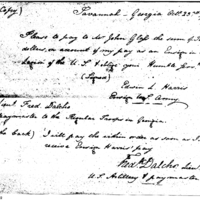 Copy)
Savannah - Georgia Oct. 27
Please to pay to Mr John Gloss the sum of
dollars, on account of my pay as an Ensign in
Legion of the U.S. & Oblige your Humble
(Signed)
Edwin L Harris
Ensign U.S Army
Lieut. Fred. Dalcho
paymaster to the Regular Troops in Georgia
the back) I will pay the within order as soon as I
receive Ensign Harris' pay
Fred. Dalcho Lieu
U.S Artillery & paymaster